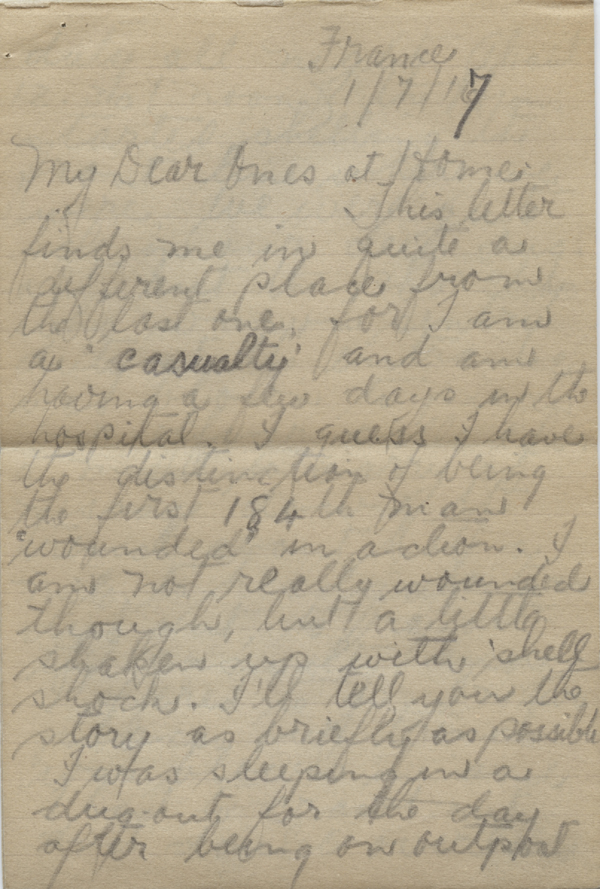 France
1/7/17
My Dear Ones at Home:
This letter
finds me in quite a
different place from
the last one, for I am
a "casualty" and am
having a few days in the
hospital. I guess I have
the distinction of being
the first 184th man
"wounded" in action. I
am not really wounded
though, but a little
shaken up with "shell
shock. I'll tell you the
story as briefly as possible
I was sleeping in a
dug-out for the day
after being on outpost